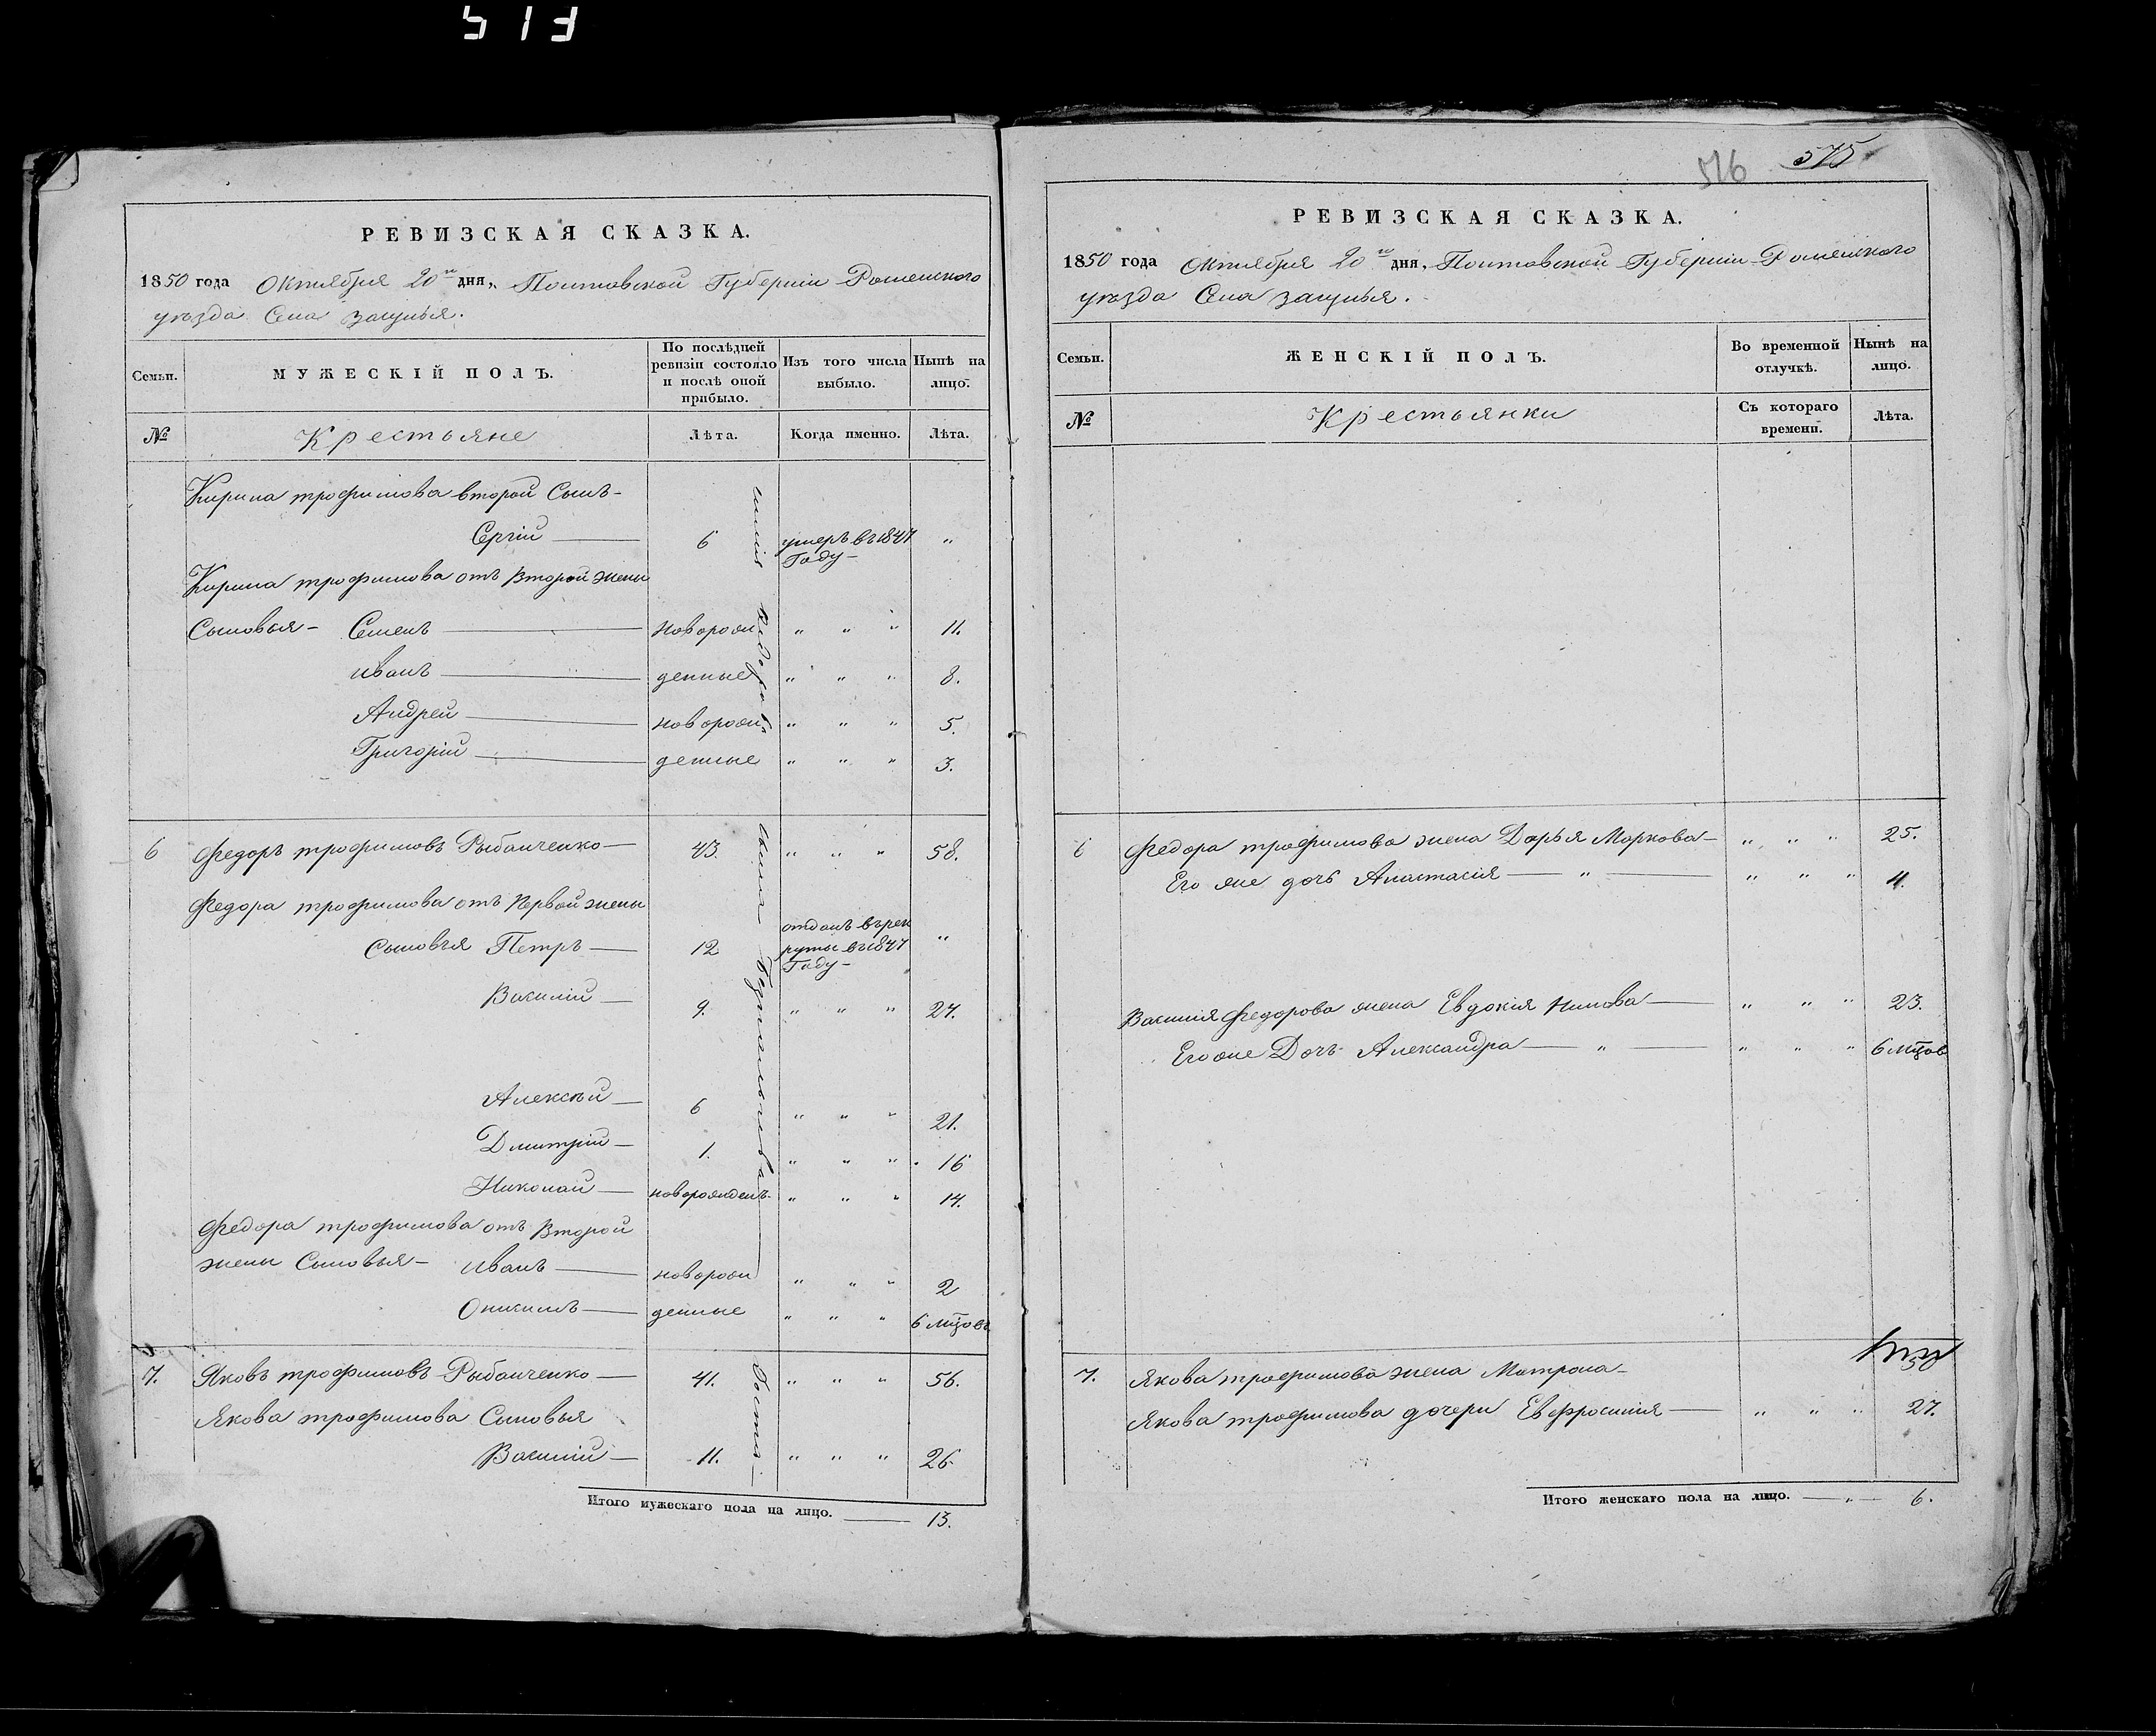 513
РЕВИЗСКАЯ СКАЗКА.
1850 года Октября 20го дня, Полтавской Губернии Роменского
уѣзда Села
Семьи.
МУЖЕСКІЙ ПОЛЪ.
По послѣдней
ревизіи состояло
и послѣ оной
прибыло.
Изъ того числа
выбыло.
Нынѣ на
лицо.
№
Крестьяне
Лѣта.
Когда именно.
Лѣта.
Кирила трофимова второй Сынъ-
Сергій 6 умеръ въ 1847 "
Году-
Кирила трофимова отъ Второй жены
Сыновья- Семенъ новорож " " " 11.
иванъ денные " " " 8.
Андрей новорож " " " 5.
Григорій денные " " " 3.
6 Федоръ трофимовъ Рыбалченко 43. " " " 58.
Федора трофимова отъ Первой жены
Сыновья Петръ 12 отданъ въ рек "
руты въ 1847
Году-
Василій 9. " " " 24.
Алексѣй 6 " " " 21.
Дмитрій 1. " " " 16
Николай новорожденъ " " " 14.
Федора трофимова отъ Второй
жены Сыновья- иванъ новорож " " " 2
денные " " " 6 мцовъ
7. Яковъ трофимовъ Рыбалченко 41. " " " 56.
Якова трофимова Сыновья
Василій 11. " " " 26
Итого мужескаго пола на лицо. 13.
516 575
РЕВИЗСКАЯ СКАЗКА.
1850 года Октября 20го дня, Полтавской Губернии Роменского
уѣзда Села
Семьи.
ЖЕНСКІЙ ПОЛЪ.
Во временной
отлучкѣ.
Нынѣ на
лицо.
№
Крестьянки
Съ котораго
времени.
Лѣта.
6 Федора трофимова жена Дарья Маркова " " " 25.
Его же дочь Анастасія " " " " 4.
Василія Федорова жена Евдокія " " " 23.
Его же Дочь Александра " " " " 6 мцов
7. Якова трофимова жена Матрона- 50
Якова трофимова дочери Евфросинія " " " 27.
Итого женскаго пола на лицо. " 6.